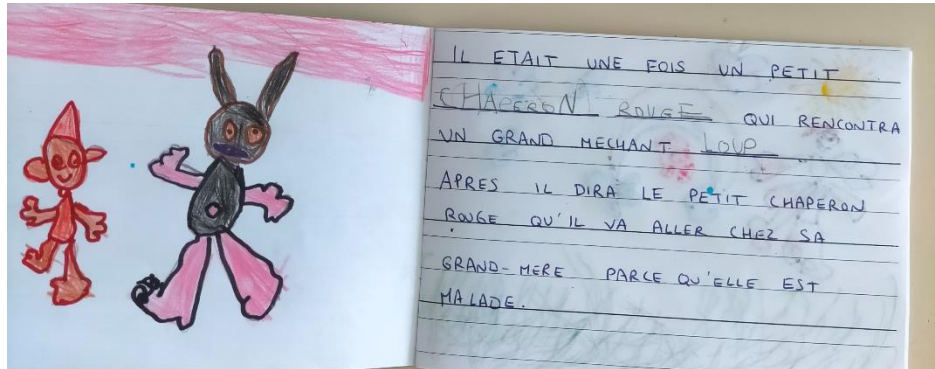 IL ETAIT UNE FOIS UN PETIT
CHAPERON ROUGE QUI RENCONTRA
UN GRAND MECHANT LOUP
APRES IL DIRA LE PETIT CHAPERON
ROUGE QU'IL VA ALLER CHEZ SA
GRAND-MERE PARCE QU'ELLE EST
MALADE.